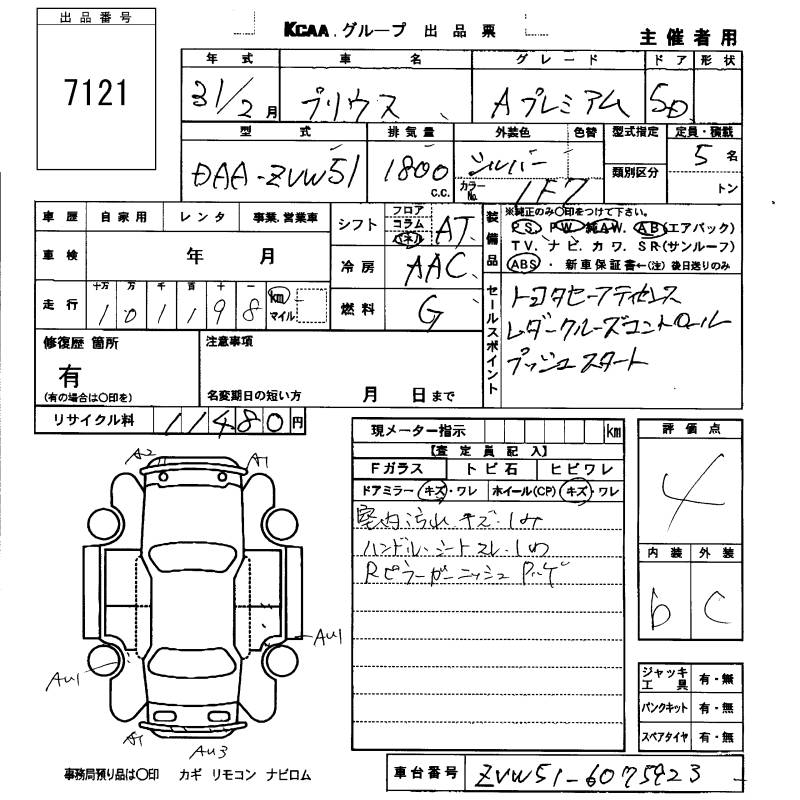 出品番号
7121
KCAA.グループ 出品票
主催者用
年式 車名 グレード ドア 形状
31/2月 プリウス Aプレミアム 5D
型式 排気量 外装色 色替 型式指定 定員・積載
DAA-ZVW51 1800 c.c. シルバー カラーNo. 1F7 類別区分 5名
トン
車歴 自家用 レンタ 事業.営業車
シフト フロア コラム パネル AT
装備品 ※純正のみ〇印をつけて下さい。
PS. PW. 純AW. AB(エアバック)
TV. ナビ. カワ. SR(サンルーフ)
ABS ・ 新車保証書←(注) 後日送りのみ
車検 年 月
冷房 AAC
走行 十万 万 千 百 十 一
101198 km マイル
燃料 G
セールスポイント
トヨタセーフティセンス
レダークルーズコントロール
プッシュスタート
修復歴 箇所
有
(有の場合は〇印を)
注意事項
名変期日の短い方 月 日まで
リサイクル料 11480円
現メーター指示 km
【査定員記入】
Fガラス トビ石 ヒビワレ
ドアミラー キズ・ワレ ホイール(CP) キズ・ワレ
室内汚れ キズ・しみ
ハンドル・シートスレ・しわ
Rピラーガーニッシュ
評価点
4
内装 外装
b C
A2
A1
AU1
AU1
A1
AU3
ジャッキ工具 有・無
パンクキット 有・無
スペアタイヤ 有・無
事務局預り品は〇印 カギ リモコン ナビロム
車台番号 ZVW51-6075923